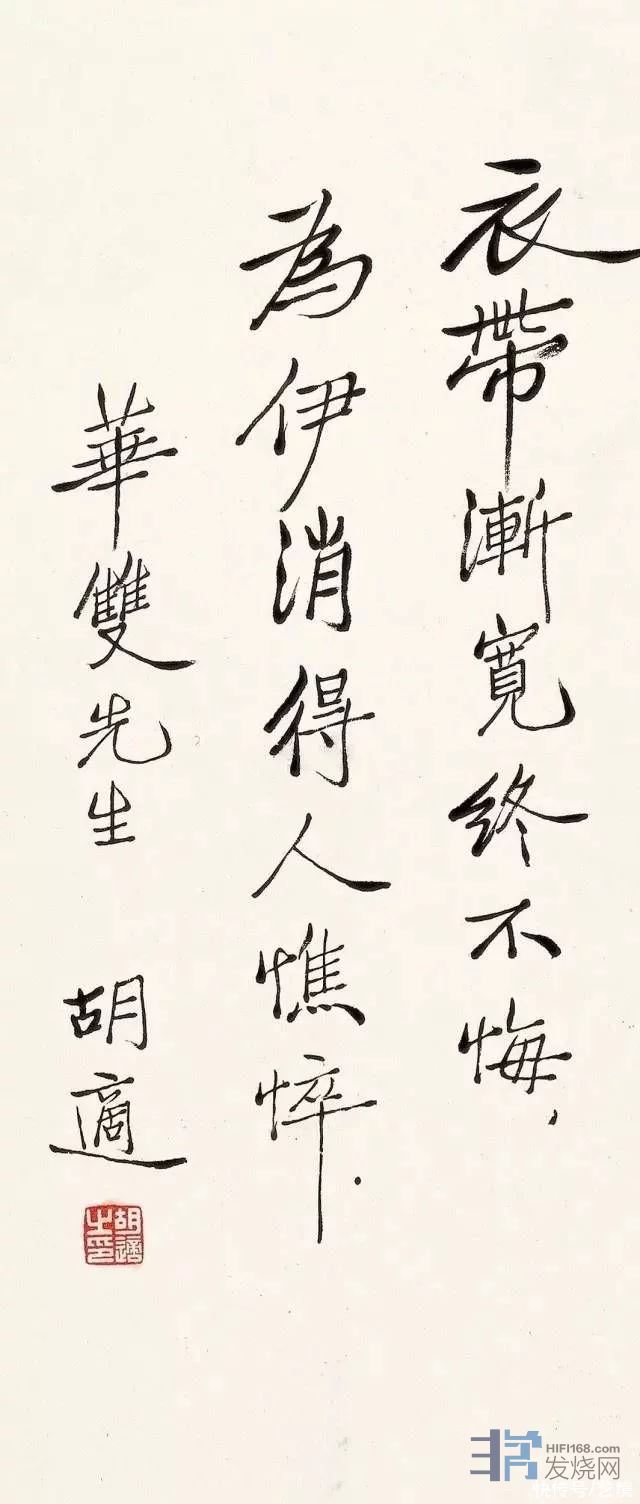 衣帶漸寬終不悔，
為伊消得人憔悴．
華雙先生 胡適
胡適之印
HIFI168.com
发烧网